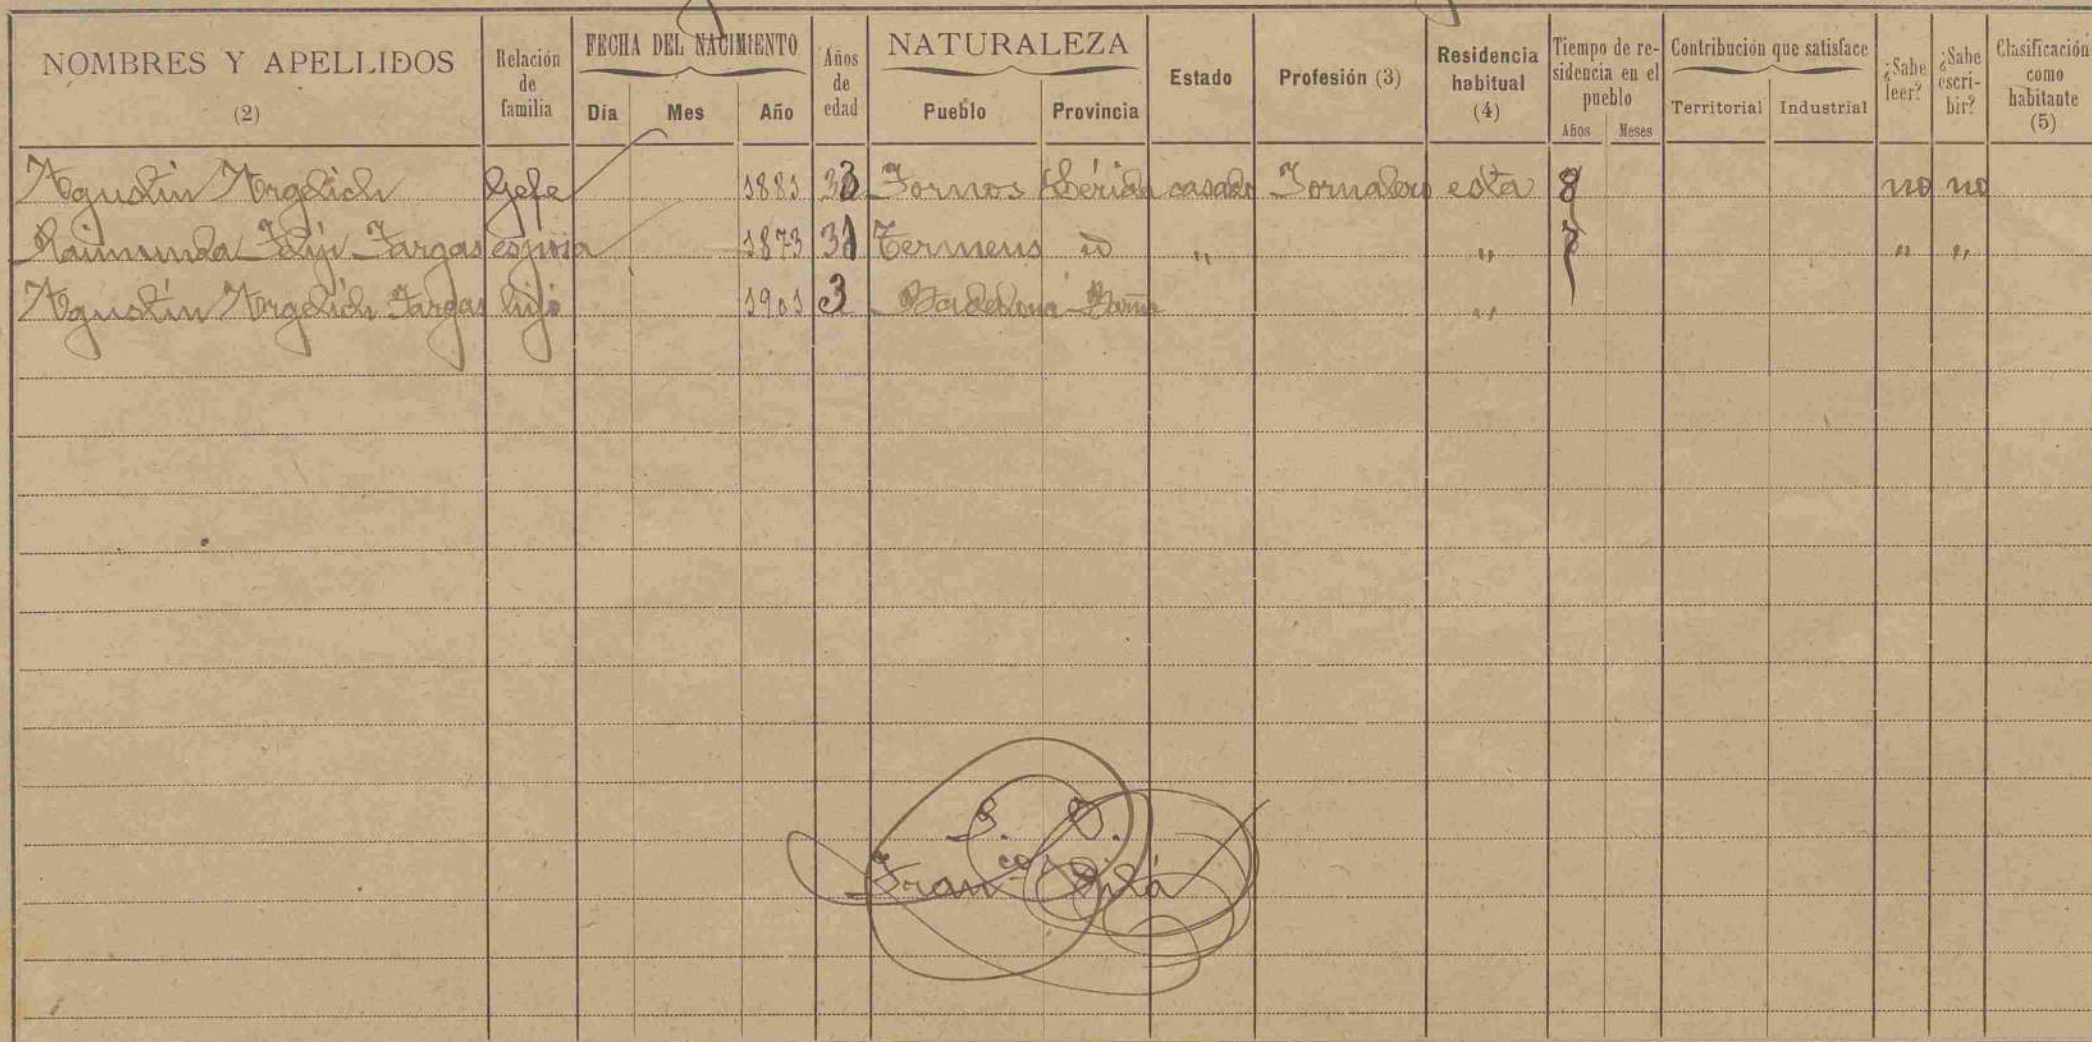 NOMBRES Y APELLIDOS (2) Relación de familia FECHA DEL NACIMIENTO Día Mes Año Años de edad NATURALEZA Pueblo Provincia Estado Profesión (3) Residencia habitual (4) Tiempo de residencia en el pueblo Años Meses Contribución que satisface Territorial Industrial ¿Sabe leer? ¿Sabe escribir? Clasificación como habitante (5)
Agustín Argelich Gefe 1881 33 Tornos Lérida casado Jornalero esta 8 no no
Raimunda Targas esposa 1873 31 Termens id " " 7 " "
Agustín Argelich Targas hijo 1901 3 Badalona Barna "
Fran.co Vilá